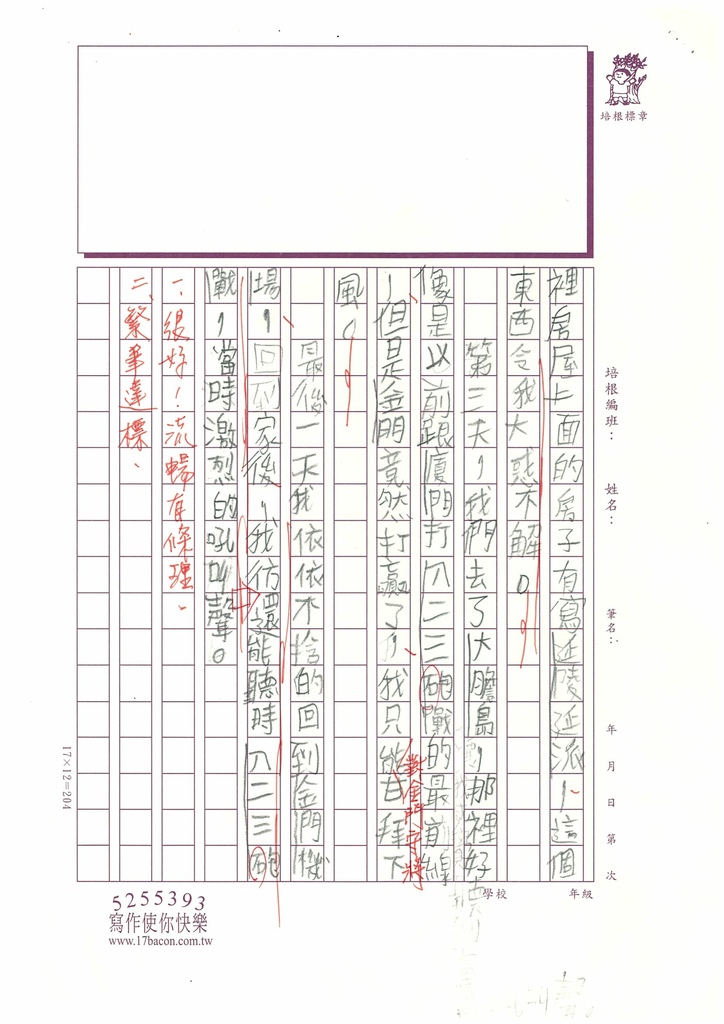 培根標章
培根編班：　姓名：　筆名：　年　月　日　第　次
裡房屋上面的房子有寫延陵延派，這個
東西令我大惑不解。
第三天，我們去了大膽島，那裡好
像是以前跟廈門打八二三砲戰的最前線
，但是金門竟然打贏了，我只能甘拜下
對金門守將
風。
最後一天我依依不捨的回到金門機
場，回到家後，我彷還能聽時八二三砲
戰，當時激烈的吼叫聲。
一、很好！流暢有條理。
二、繁筆達標、
17×12=204
學校　年級
5255393
寫作使你快樂
www.17bacon.com.tw